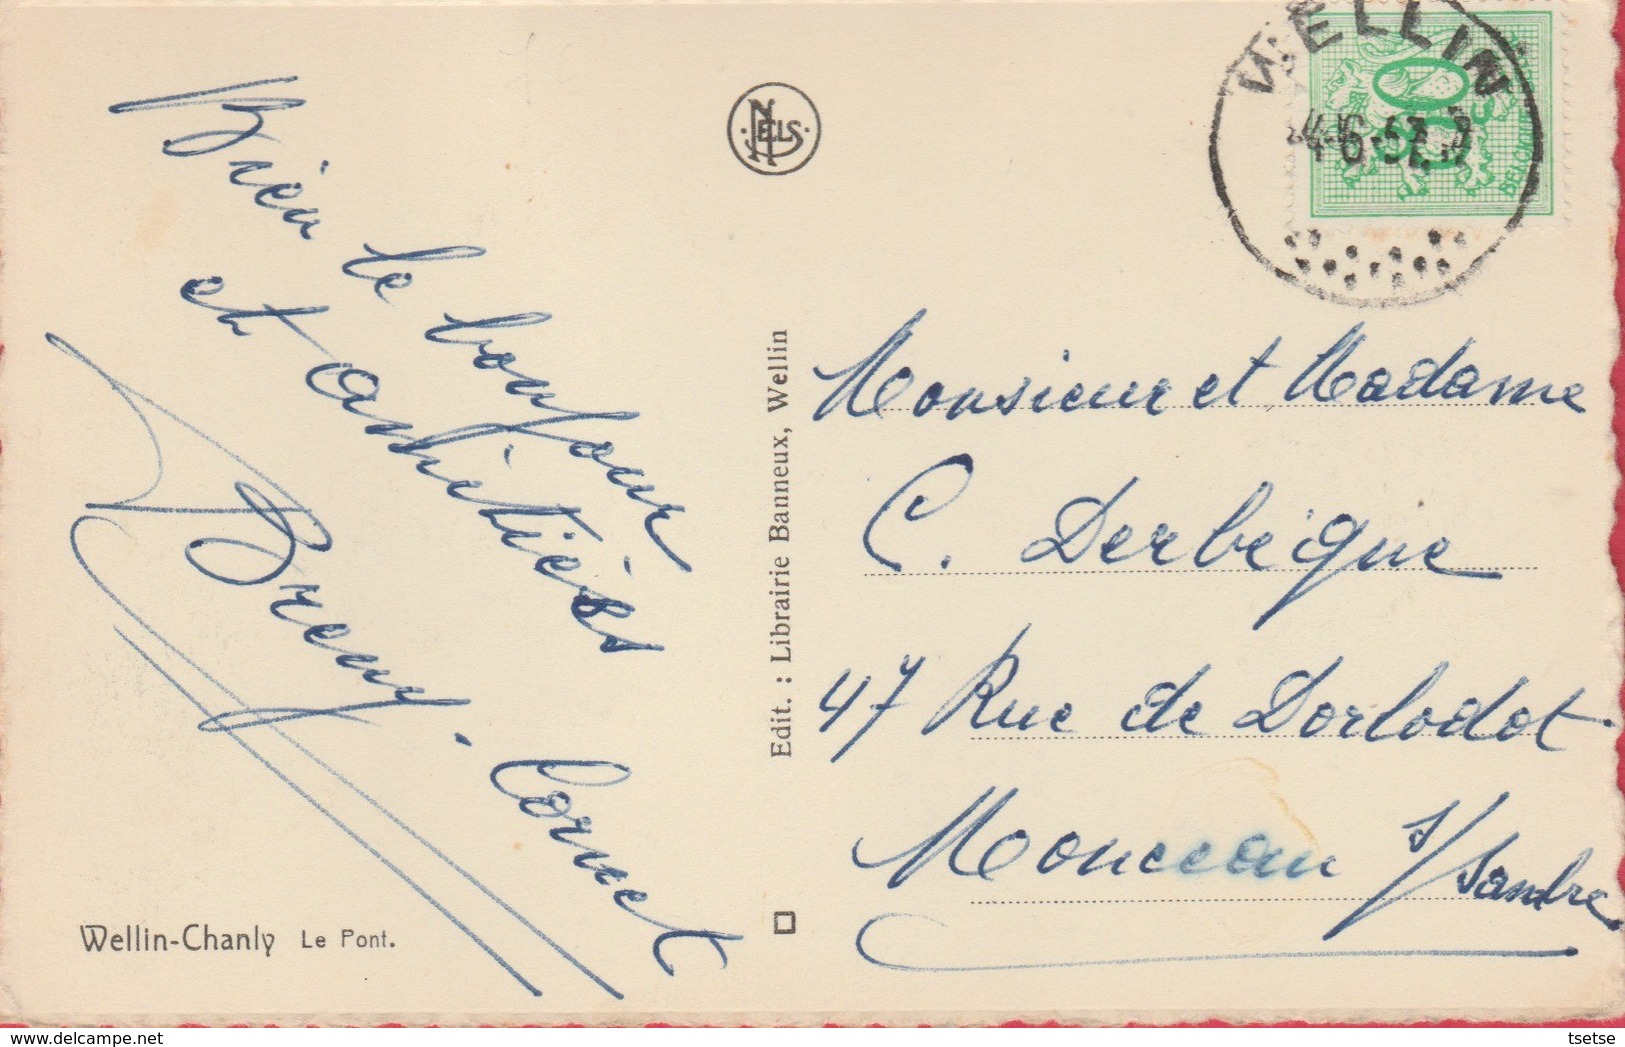 Bien le bonjour
et amitiés
Breuy. Cornet
Wellin-Chanly Le Pont.
NELS
Edit. : Librairie Banneux, Wellin
WELLIN
Monsieur et Madame
C. Derbeique
47 Rue de Dorlodot
Monceau s/Sambre
delcampe.net
tsetse